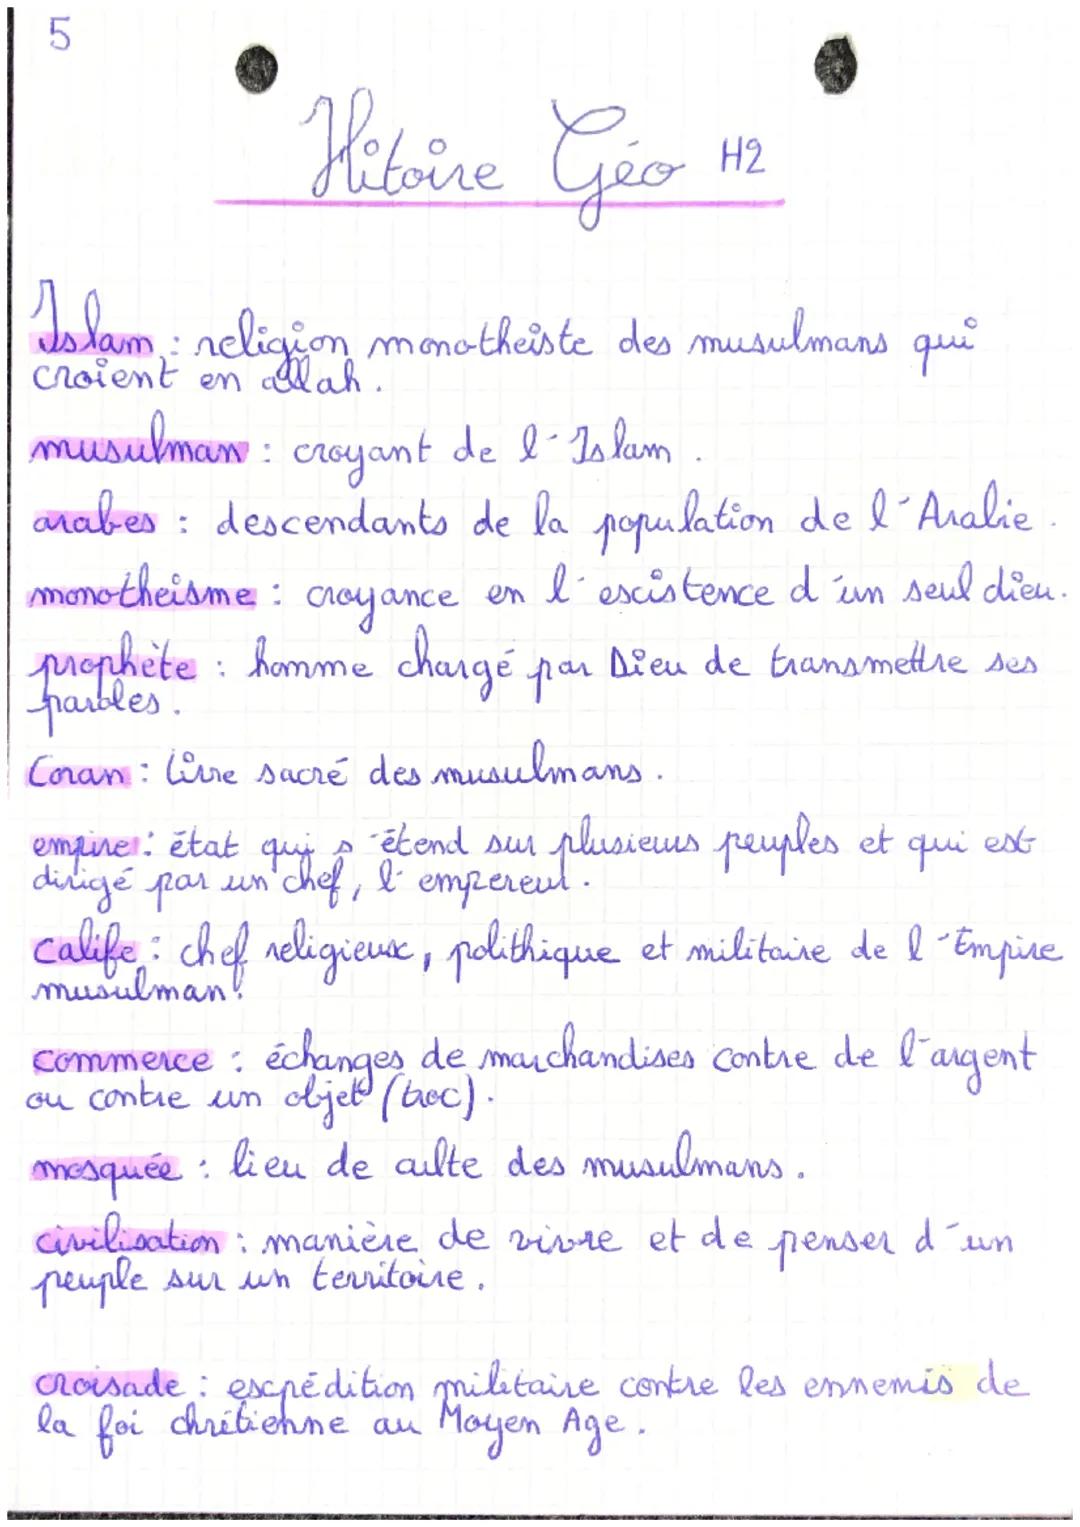 5
Hitoire Géo H2
Islam : religion monotheiste des musulmans qui
croient en allah.
musulman : croyant de l'Islam.
arabes : descendants de la population de l'Arabie.
monotheisme : croyance en l'existence d'un seul dieu.
prophète : homme chargé par Dieu de transmettre ses
paroles.
Coran : livre sacré des musulmans.
empire : état qui s'étend sur plusieurs peuples et qui est
dirigé par un chef, l'empereur.
calife : chef religieux, polithique et militaire de l'Empire
musulman.
commerce : échanges de marchandises contre de l'argent
ou contre un objet (troc).
mosquée : lieu de culte des musulmans.
civilisation : manière de vivre et de penser d'un
peuple sur un territoire.
croisade : expédition militaire contre les ennemis de
la foi chrétienne au Moyen Age.